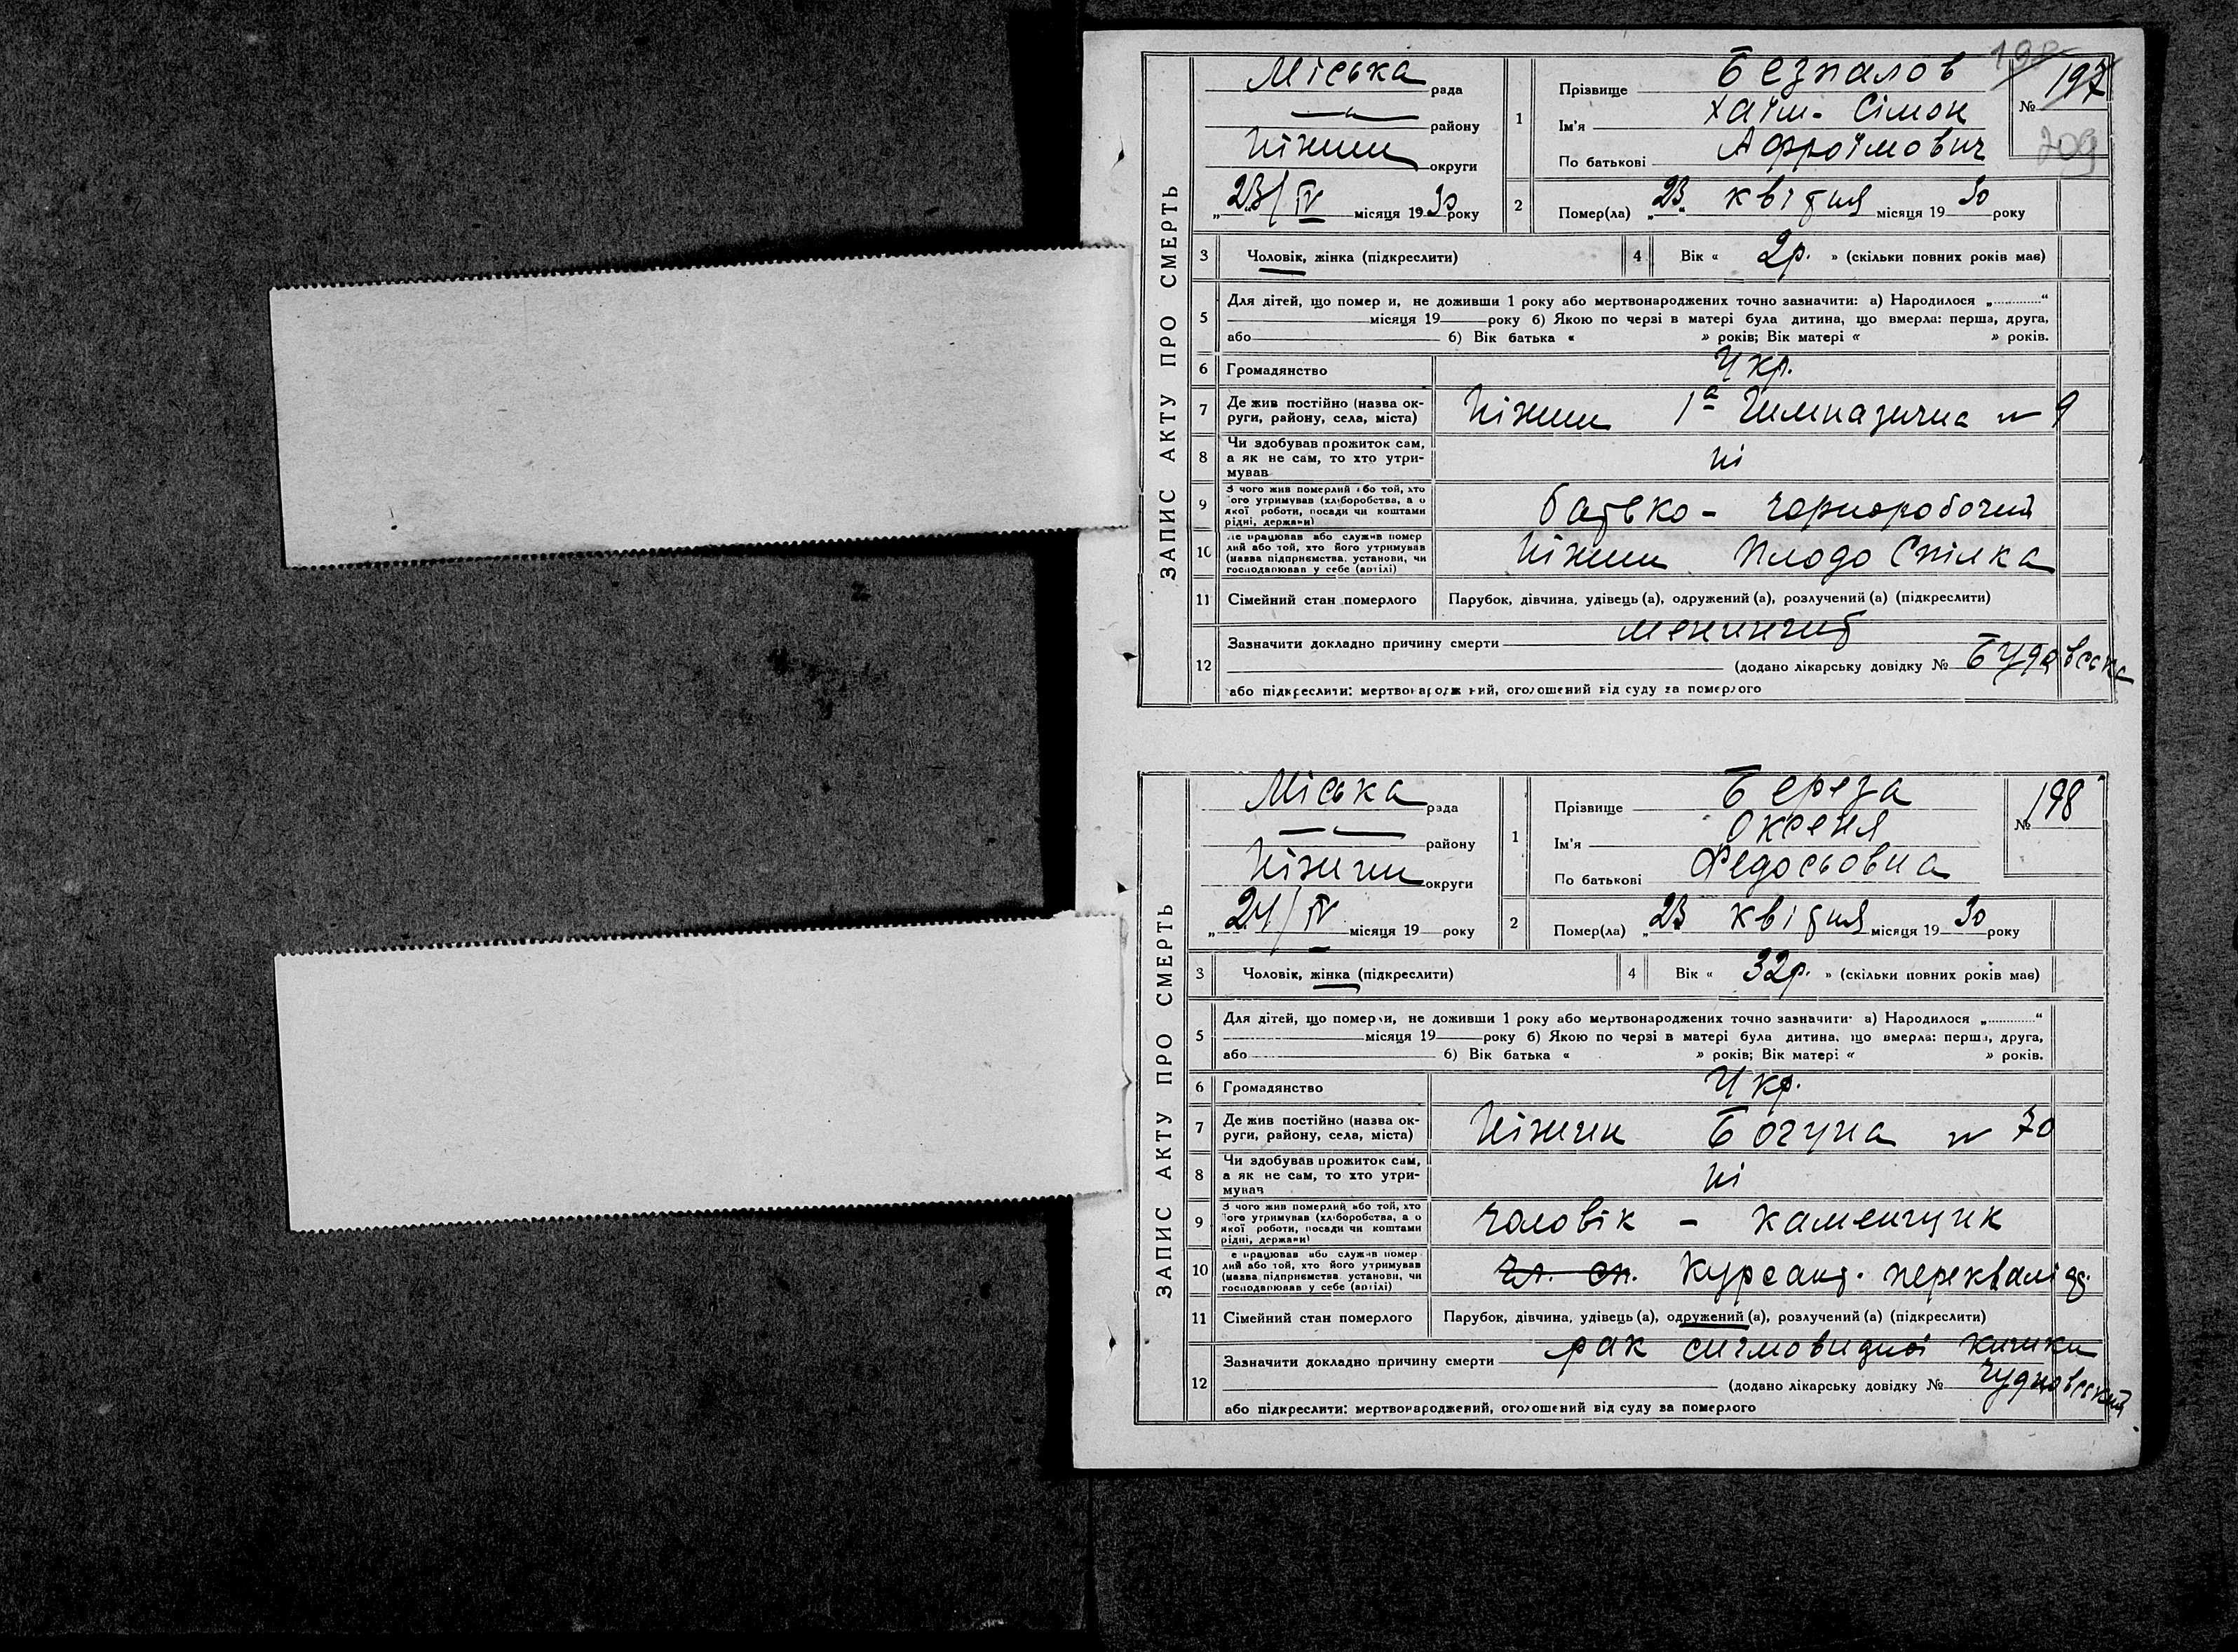 ЗАПИС АКТУ ПРО СМЕРТЬ
Міська рада
району
Ніжин округи
„23/IV місяця 1930 року
1
Прізвище Безпалов
Ім'я Хаїм-Сімон
По батькові Афроїмович
№ 197
209
2 Помер(ла) „23“ квітня місяця 1930 року
3 Чоловік, жінка (підкреслити)
4 Вік « 2р. » (скільки повних років має)
5 Для дітей, що помер и, не доживши 1 року або мертвонароджених точно зазначити: а) Народилося „ “
місяця 19 року б) Якою по черзі в матері була дитина, що вмерла: перша, друга,
або б) Вік батька « » років; Вік матері « » років.
6 Громадянство Укр.
7 Де жив постійно (назва ок-
руги, району, села, міста) Ніжин 1а Гімназична № 9
8 Чи здобував прожиток сам,
а як не сам, то хто утри-
мував ні
9 З чого жив померлий або той, хто
ого утримував (хліборобства, а о
якої роботи, посади чи коштами
рідні, держави) батько - чорноробочий
10 е працював або служив помер
лий або той, хто його утримував
(назва підприємства, установи, чи
господарював у себе (артілі) Ніжин Плодо Спілка
11 Сімейний стан померлого Парубок, дівчина, удівець (а), одружений (а), розлучений (а) (підкреслити)
12 Зазначити докладно причину смерти менингит
(додано лікарську довідку №
або підкреслити: мертвонароджений, оголошений від суду за померлого
ЗАПИС АКТУ ПРО СМЕРТЬ
Міська рада
району
Ніжин округи
„24/IV місяця 19 року
1
Прізвище Береза
Ім'я Оксеня
По батькові Федосьовна
№ 198
2 Помер(ла) „23 квітня місяця 1930 року
3 Чоловік, жінка (підкреслити)
4 Вік « 32р. » (скільки повних років має)
5 Для дітей, що померли, не доживши 1 року або мертвонароджених точно зазначити: а) Народилося „ “
місяця 19 року б) Якою по черзі в матері була дитина, що вмерла: перша, друга,
або б) Вік батька « » років; Вік матері « » років.
6 Громадянство Укр.
7 Де жив постійно (назва ок-
руги, району, села, міста) Ніжин Богуна № 70
8 Чи здобував прожиток сам,
а як не сам, то хто утри-
мував ні
9 З чого жив померлий або той, хто
ого утримував (хліборобства, а о
якої роботи, посади чи коштами
рідні, держави) чоловік - каменщик
10 е працював або служив помер
лий або той, хто його утримував
(назва підприємства, установи, чи
господарював у себе (артілі) чл. сп. курсант. перекваліф.
11 Сімейний стан померлого Парубок, дівчина, удівець (а), одружений (а), розлучений (а) (підкреслити)
12 Зазначити докладно причину смерти рак сигмовидної кишки
(додано лікарську довідку № Чудновський
або підкреслити: мертвонароджений, оголошений від суду за померлого